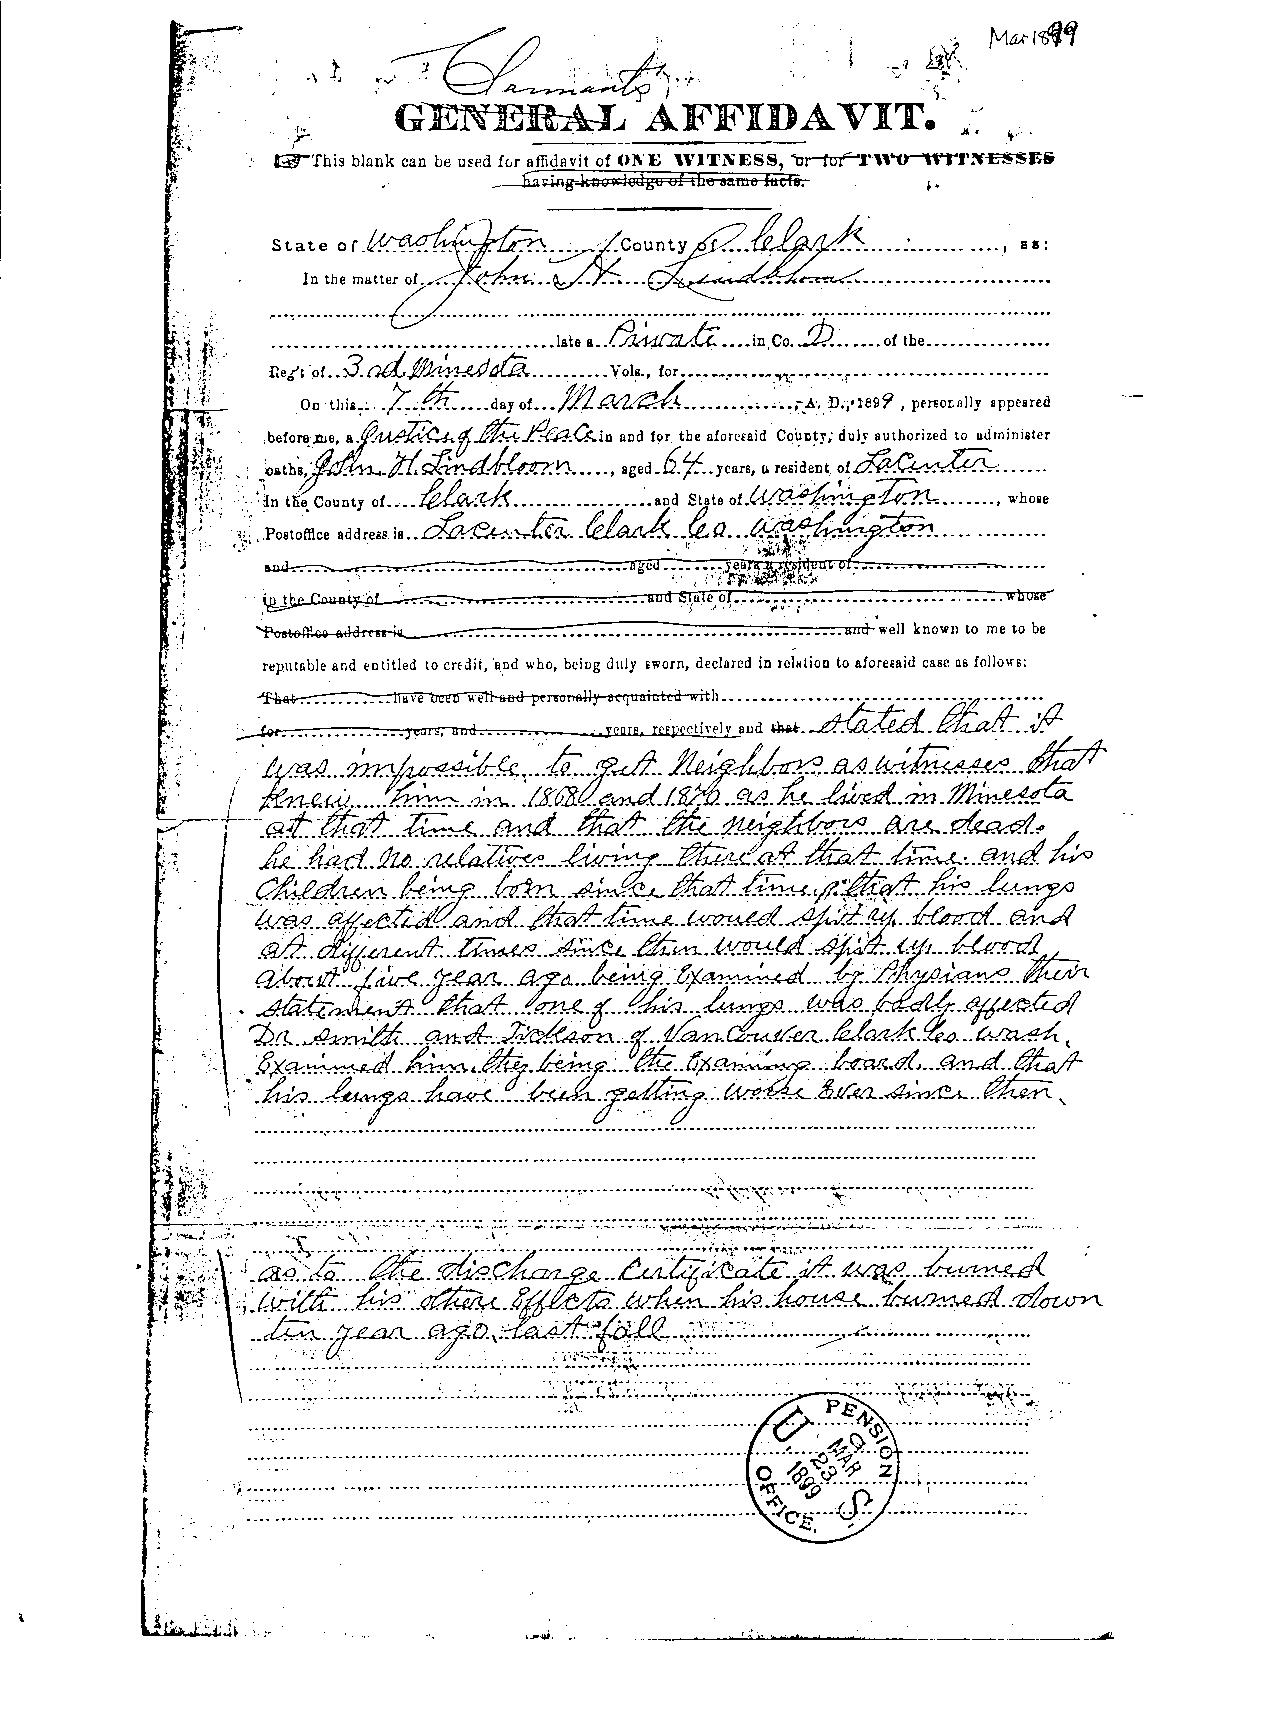 Mar 1899
Claimants
GENERAL AFFIDAVIT.
This blank can be used for affidavit of ONE WITNESS, or for TWO WITNESSES
having knowledge of the same facts.
State of Washington County of Clark, ss:
In the matter of John H Lindbloom
late a Private in Co. D of the
Reg't of 3rd Minesota Vols., for
On this 7th day of March, A. D., 1899, personally appeared
before me, a Justice of the Peace in and for the aforesaid County, duly authorized to administer
oaths, John H. Lindbloom, aged 64 years, a resident of LaCenter
In the County of Clark and State of Washington, whose
Postoffice address is LaCenter Clark Co Washington
and aged years a resident of
in the County of and State of whose
Postoffice address is and well known to me to be
reputable and entitled to credit, and who, being duly sworn, declared in relation to aforesaid case as follows:
That have been well and personally acquainted with
for years, and years, respectively and that stated that it
was impossible to get Neighbors as witnesses that
Knew him in 1868 and 1870 as he lived in Minesota
at that time and that the neighbors are dead.
he had no relatives living there at that time and his
Children being born since that time, that his lungs
was affected and that time would spit up blood and
at different times since then would spit up blood
about five year ago being Examined by Physians their
statement that one of his lungs was badly affected
Dr Smith and Tickson of Vancouver Clark Co Wash.
Examined him they being the Examining board. and that
his lungs have been getting worse Ever since then.
as to the discharge Certificate it was burned
with his othere Effects when his house burned down
ten year ago last fall
U. S. PENSION OFFICE.
MAR 23 1899